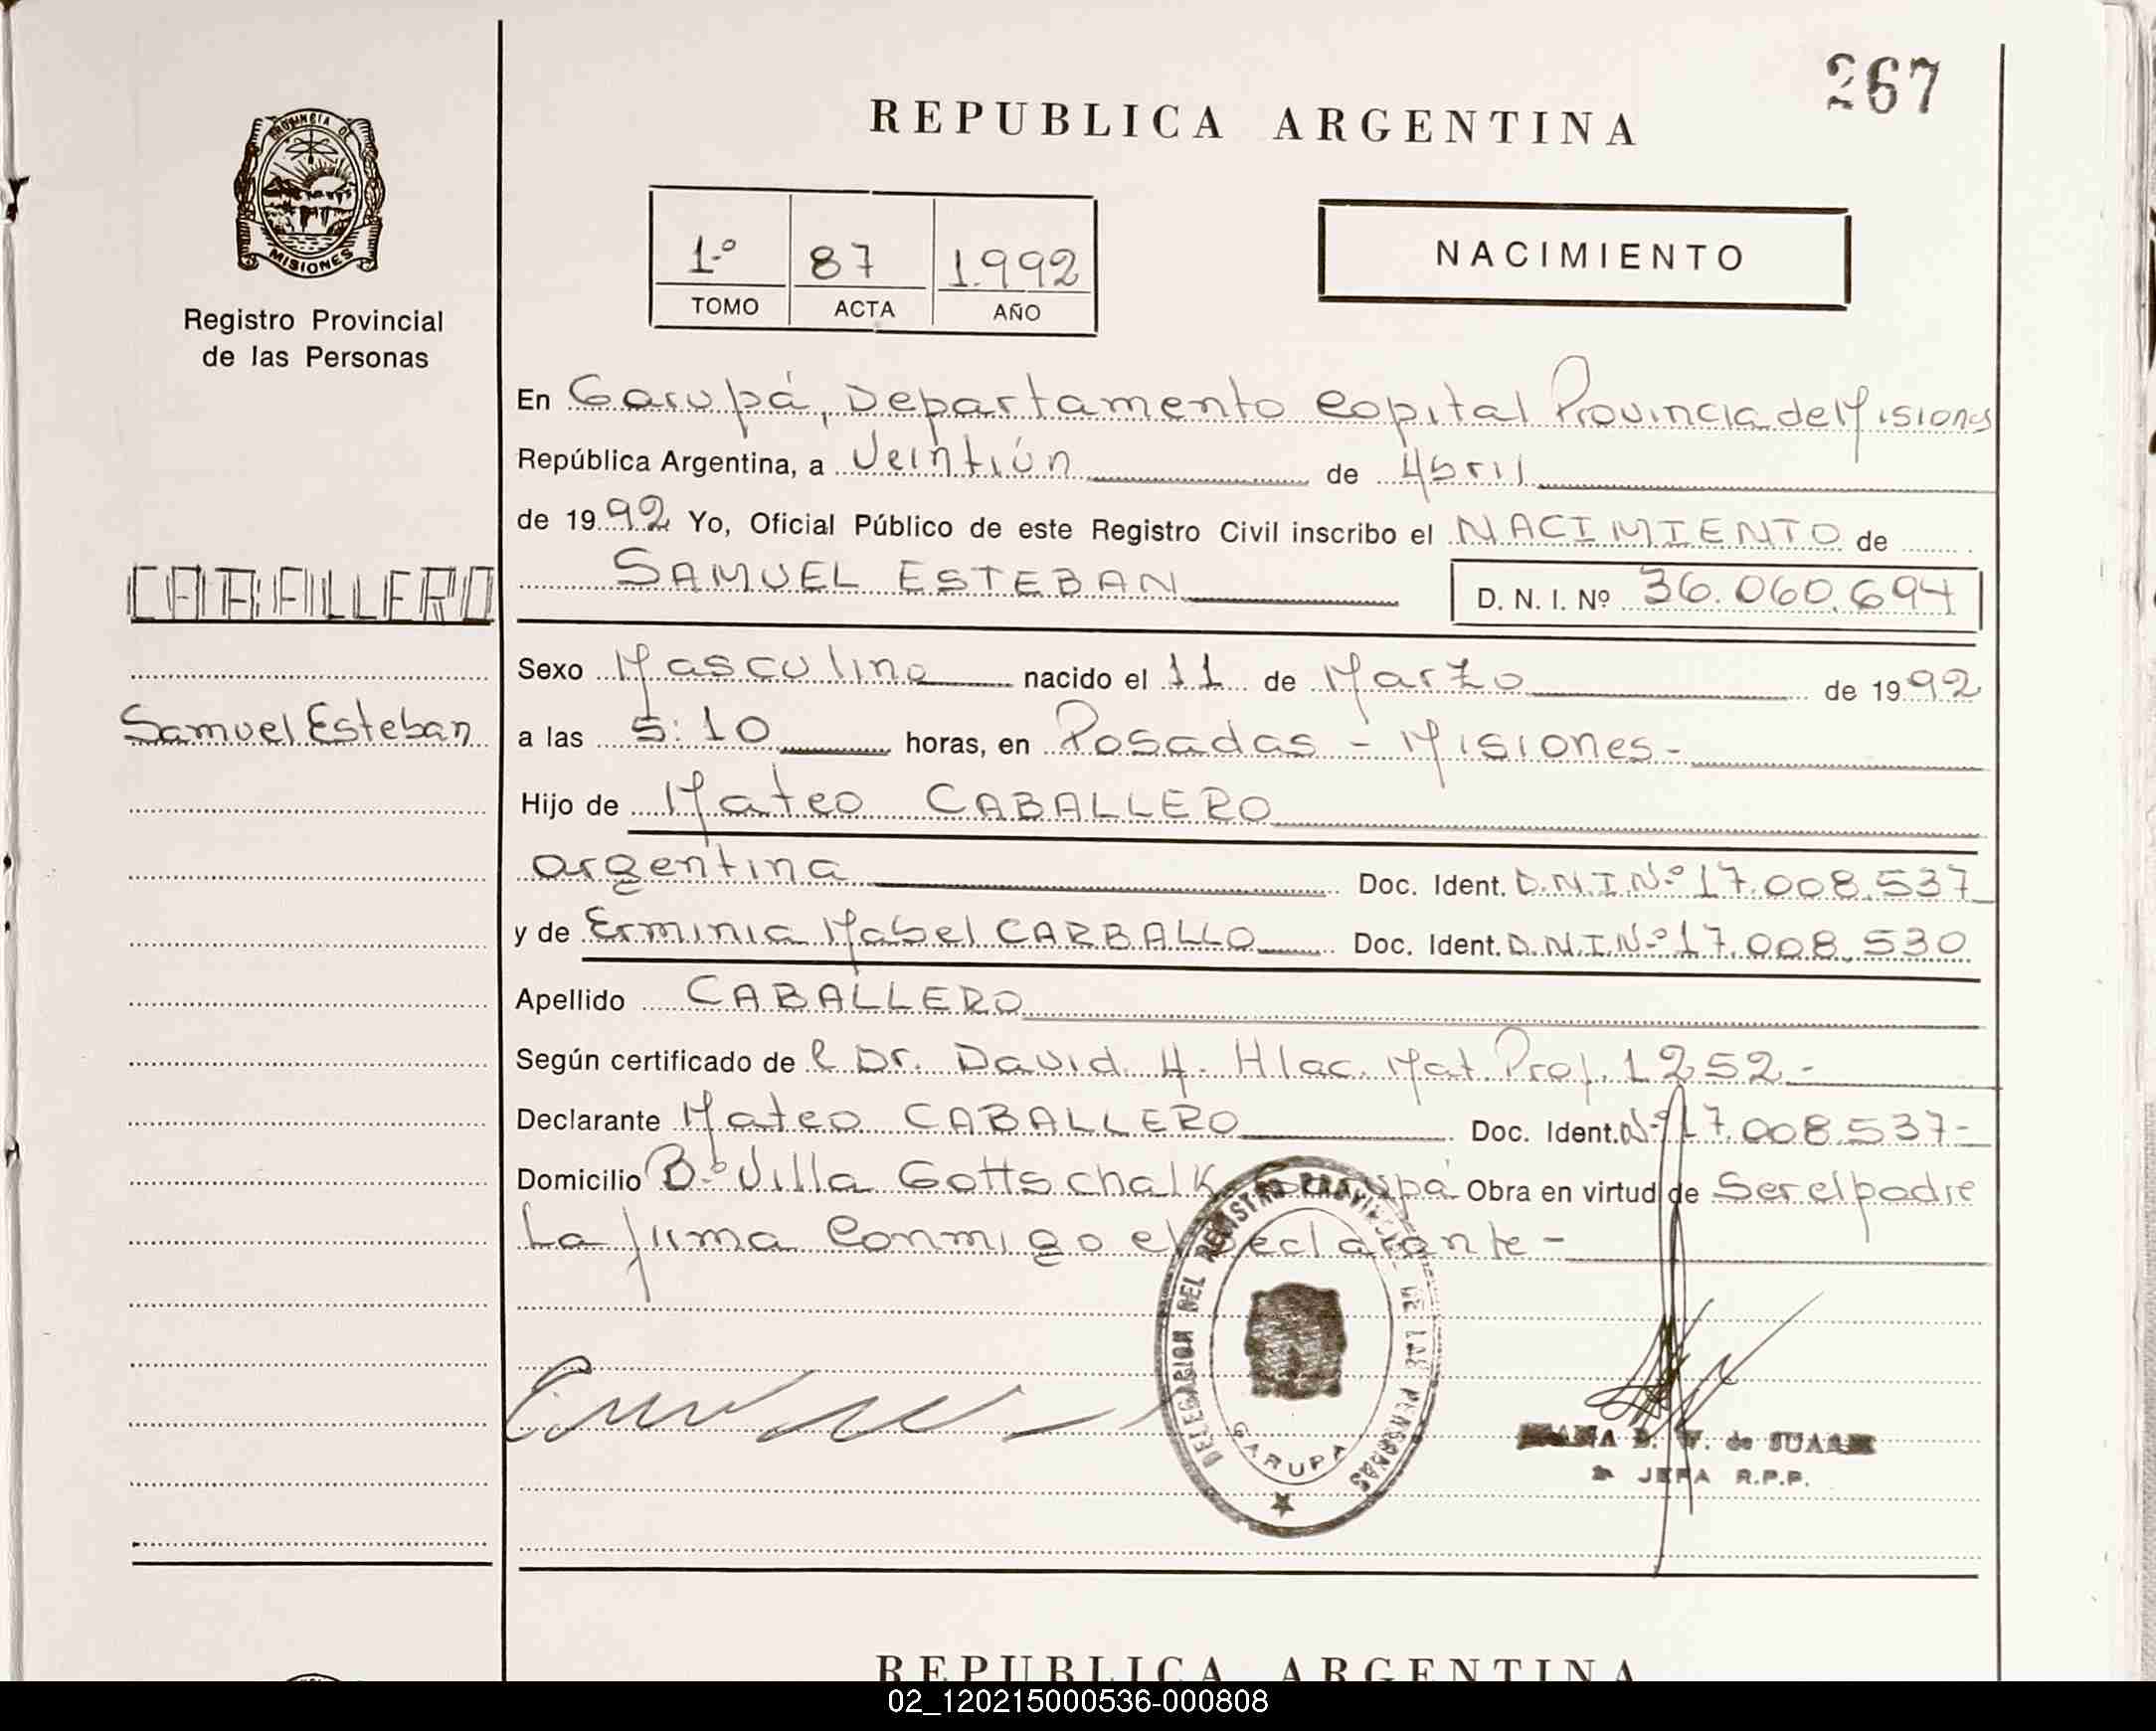 267
REPUBLICA ARGENTINA
PROVINCIA DE
MISIONES
Registro Provincial
de las Personas
1.º 87 1.992
TOMO ACTA AÑO
NACIMIENTO
En Garupá, Departamento Capital Provincia de Misiones
República Argentina, a Veintiún de Abril
de 1992 Yo, Oficial Público de este Registro Civil inscribo el NACIMIENTO de
CABALLERO
SAMUEL ESTEBAN D. N. I. Nº 36.060.694
Sexo Masculino nacido el 11 de Marzo de 1992
Samuel Esteban
a las 5:10 horas, en Posadas - Misiones.-
Hijo de Mateo CABALLERO
argentina Doc. Ident. D.N.I.Nº 17.008.537
y de Erminia Mabel CARBALLO Doc. Ident. D.N.I.Nº 17.008.530
Apellido CABALLERO
Según certificado de l Dr. David H. Hlac. Mat. Prof. 1252.-
Declarante Mateo CABALLERO Doc. Ident. Nº 17.008.537-
Domicilio Bº Villa Gottschalk Garupá Obra en virtud de Ser el padre
La firma Conmigo el Declarante-
DELEGACION DEL REGISTRO PROVINCIAL DE LAS PERSONAS
GARUPA
de JUAREZ
JEFA R.P.P.
REPUBLICA ARGENTINA
02_120215000536-000808